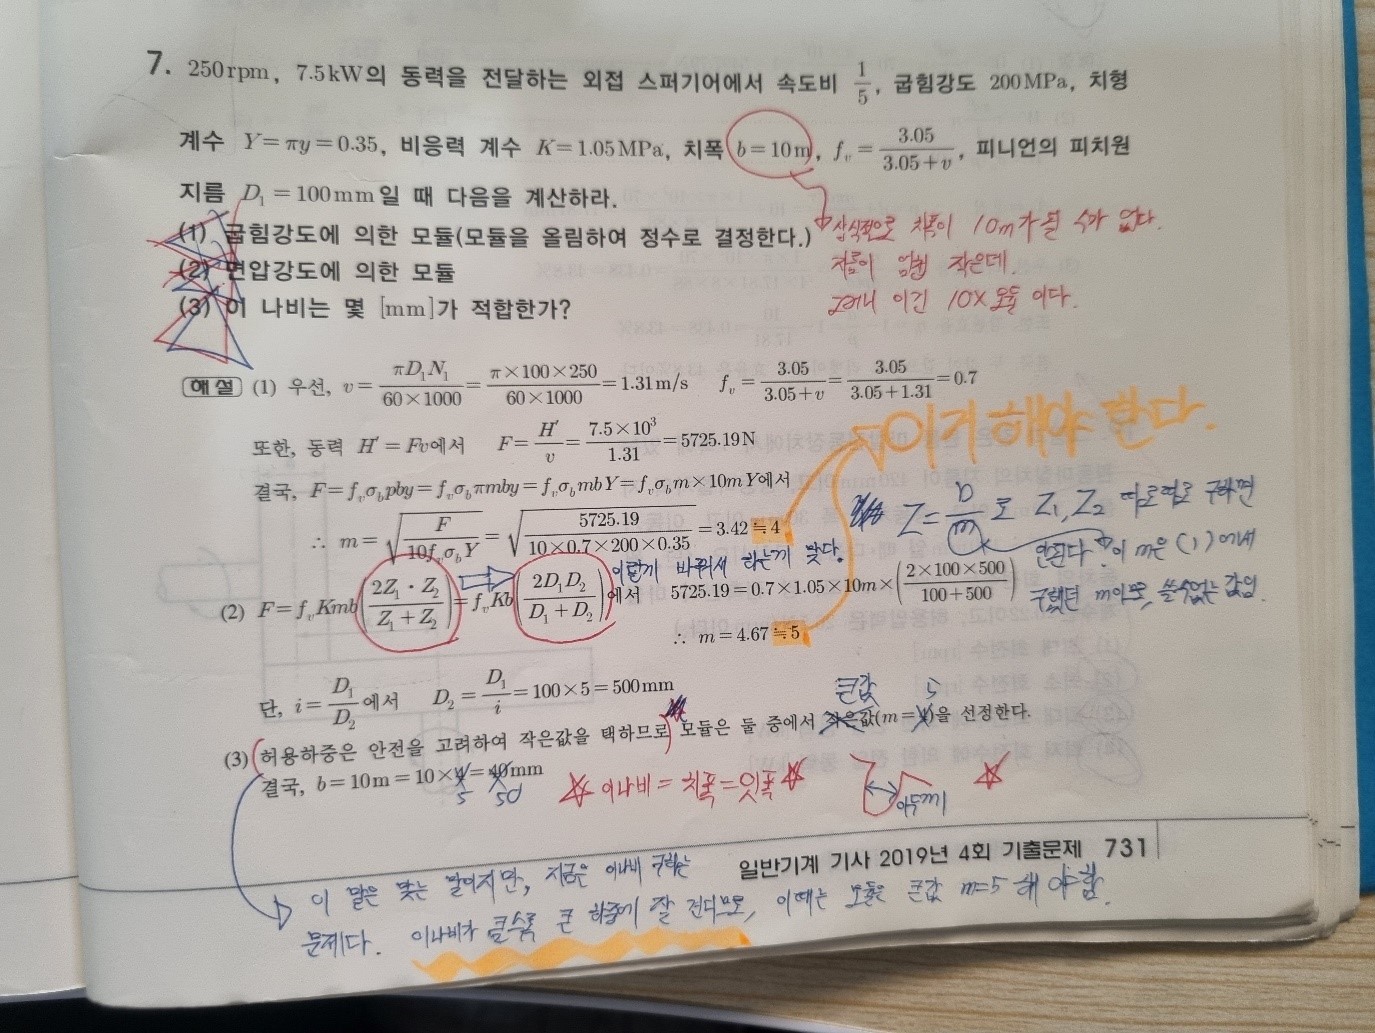 7. 250 rpm, 7.5 kW의 동력을 전달하는 외접 스퍼기어에서 속도비 1/5, 굽힘강도 200 MPa, 치형
계수 Y = πy = 0.35, 비응력 계수 K = 1.05 MPa, 치폭 b = 10m, f_v = 3.05/(3.05+v), 피니언의 피치원
지름 D₁ = 100 mm일 때 다음을 계산하라.
(1) 굽힘강도에 의한 모듈(모듈을 올림하여 정수로 결정한다.)
상식적으로 치폭이 10m가 될 수가 없다.
(2) 면압강도에 의한 모듈
지름이 작은데.
(3) 이 나비는 몇 [mm]가 적합한가?
이건 10×모듈 이다.
해설 (1) 우선, v = πD₁N₁/(60×1000) = π×100×250/(60×1000) = 1.31 m/s f_v = 3.05/(3.05+v) = 3.05/(3.05+1.31) = 0.7
이거 해야 한다.
또한, 동력 H′ = Fv에서 F = H′/v = 7.5×10³/1.31 = 5725.19 N
결국, F = f_vσ_bpby = f_vσ_bπmby = f_vσ_bmbY = f_vσ_bm×10mY에서
∴ m = √(F/(10f_vσ_bY)) = √(5725.19/(10×0.7×200×0.35)) = 3.42 ≒ 4
Z = D/m 로 Z₁, Z₂ 따로따로 구하면
안된다 이 m은 (1)에서
구했던 m이므로, 쓸수없는 값임.
이렇게 바꿔서 하는게 맞다.
(2) F = f_vKmb(2Z₁·Z₂/(Z₁+Z₂)) = f_vKb(2D₁D₂/(D₁+D₂))에서 5725.19 = 0.7×1.05×10m×(2×100×500/(100+500))
∴ m = 4.67 ≒ 5
단, i = D₁/D₂에서 D₂ = D₁/i = 100×5 = 500 mm
큰값 5
(3) 허용하중은 안전을 고려하여 작은값을 택하므로 모듈은 둘 중에서 작은값(m=4)을 선정한다.
결국, b = 10m = 10×4 = 40 mm
5 50
☆ 이나비 = 치폭 = 잇폭 ☆
이두께 ☆
일반기계 기사 2019년 4회 기출문제 731
이 말은 맞는 말이지만, 지금은 이나비 구하는
문제다. 이나비가 클수록 큰 하중에 잘 견디므로, 이때는 모듈은 큰값 m=5 해야함.